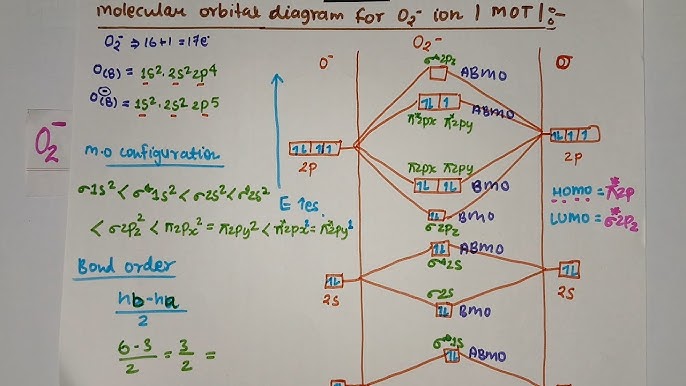 molecular orbital diagram for O₂⁻ ion | MOT |:-
O₂⁻ ⇒ 16+1 = 17e⁻
O(8) = 1s². 2s² 2p⁴
O⁻(8) = 1s². 2s² 2p⁵
O₂⁻
M.O configuration
σ1s² < σ*1s² < σ2s² < σ*2s²
< σ2pz² < π2px² = π2py² < π*2px² = π*2py¹
Bond order
nb-na
2
6-3/2 = 3/2 =
E ↑es.
O⁻ O₂⁻ O
σ*2pz ABMO
1L 1 ABMO
π*2px π*2py
1L 1 1 2p
1L 1 1 2p
π2px π2py
1L 1L BMO
1L BMO
σ2pz
HOMO = π*2p
LUMO = σ*2pz
1L ABMO
σ*2s
1L 2s
1L 2s
σ2s
1L BMO
σ*1s
1L ABMO